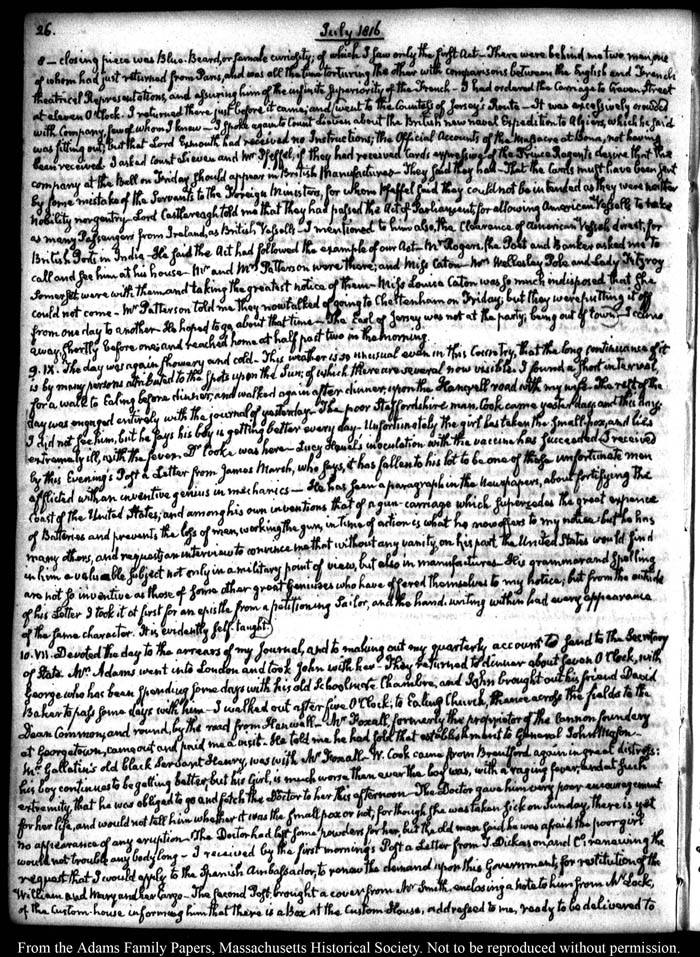 26. July 1816
8 — closing piece was Blue-Beard, or female curiosity; of which I saw only the first Act — There were behind me two men, one
of whom had just returned from Paris, and was all the time torturing the other with comparisons between the English and French
theatrical Representations, and assuring him of the infinite superiority of the French — I had ordered the Carriage to Craven Street
at eleven O'Clock. I returned there just before it came; and went to the Countess of Jersey's Route — It was excessively crowded
with Company, few of whom I knew — I spoke again to Count Lieven about the British new naval Expedition to Algiers, which he said
was fitting out; but that Lord Exmouth had received no Instructions; the Official Accounts of the Massacre at Bona, not having
been received. I asked Count Lieven and Mr Pfeffel, if they had received Cards expressing the Prince Regent's desire that the
company at the Ball on Friday, should appear in British Manufactures — They said they had — That the Cards must have been sent
by some mistake of the Servants to the Foreign Ministers, for whom Pfeffel said they could not be intended as they were neither
nobility nor gentry — Lord Castlereagh told me that they had passed the Act of Parliament, for allowing American Vessels to take
as many Passengers from Ireland, as British Vessels — I mentioned to him also, the clearance of American Vessels direct, for
British Ports in India — He said the Act had followed the example of our Act — Mr Rogers, the Poet and Banker asked me to
call and see him at his house — Mr and Mrs Patterson were there; and Miss Caton — Mrs Wellesley Pole and Lady Fitzroy
Somerset were with them and taking the greatest notice of them — Miss Louisa Caton was so much indisposed that she
could not come — Mr Patterson told me they now talked of going to Cheltenham on Friday; but they were putting it off
from one day to another — He hoped to go about that time — The Earl of Jersey was not at the party; being out of town — I came
away shortly before one; and reached home at half past two in the morning.
9. IX. The day was again showery and cold — This weather is so unusual even in this Country, that the long continuance of it
is by many persons attributed to the spots upon the Sun; of which there are several now visible. I found a short interval
for a walk to Ealing before dinner, and walked again after dinner, upon the Hanwell road with my wife. The rest of the
day was engaged entirely with the journal of yesterday — The poor Staffordshire man, Cook came yesterday, and this day.
I did not see him, but he says his boy is getting better every day — Unfortunately the girl has taken the Small-pox, and lies
extremely ill, with the fever. Dr Cooke was here — Lucy Houel's inoculation with the vaccine has succeeded. I received
by this Evening's Post a Letter from James Marsh, who says, it has fallen to his lot to be one of those unfortunate men
afflicted with an inventive genius in mechanics — He has seen a paragraph in the Newspapers, about fortifying the
coast of the United States; and among his own inventions that of a gun-carriage which supersedes the great expence
of Batteries and prevents the loss of men, working the gun, in time of action is what he now offers to my notice: but he has
many others, and requests an interview to convince me that without any vanity on his part the United States would find
in him a valuable subject not only in a military point of view, but also in manufactures. His grammar and spelling
are not so inventive as those of some other great Geniuses who have offered themselves to my notice; but from the outside
of his Letter I took it at first for an epistle from a petitioning Sailor, and the hand-writing within had every appearance
of the same character. It is evidently self-taught.
10. VII. Devoted the day to the arrears of my Journal, and to making out my quarterly account to send to the Secretary
of State. Mrs. Adams went into London and took John with her — They returned to dinner about seven O'Clock, with
George who has been spending some days with his old Schoolmate Chambre, and John brought out his friend David
Baker to pass some days with him — I walked out after five O'Clock; to Ealing Church, thence across the fields to the
Dean Common, and round, by the road from Hanwell — Mr Foxall, formerly the proprietor of the Cannon foundery
at Georgetown, came out and paid me a visit — He told me he had sold that establishment to General John Mason —
Mr Gallatin's old black Servant Henry, was with Mr Foxall — W. Cook came from Brentford again in great distress:
his boy continues to be getting better, but his Girl, is much worse than ever the boy was, with a raging fever, and at such
extremity, that he was obliged to go and fetch the Doctor to her this afternoon — The Doctor gave him very poor encouragement
for her life, and would not tell him whether it was the Small pox or not, for though she was taken sick on Sunday, there is yet
no appearance of any eruption. The Doctor had left some powders for her, but the old man said he was afraid the poor girl
would not trouble any body long — I received by the first morning's Post a Letter from T. Dickason and Co; renewing the
request that I would apply to the Spanish Ambassador, to renew the demand upon this Government, for restitution of the
William and Mary and her Cargo — The second Post, brought a cover from Mr Smith, enclosing a note to him from Mr Lock,
of the Custom-house informing him that there is a Box at the Custom House, addressed to me, ready to be delivered to
From the Adams Family Papers, Massachusetts Historical Society. Not to be reproduced without permission.